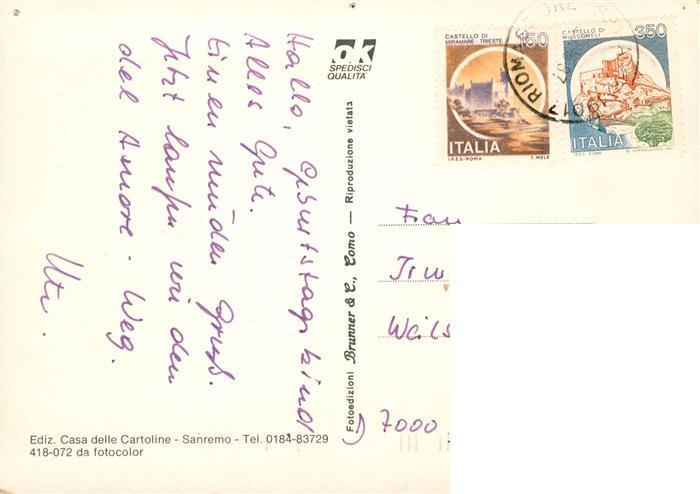 Hallo, Geburtstagskind
Alles Gute.
Einen müden Gruß.
Jetzt laufen wir den
del Amore - Weg.
Ute.
ok
SPEDISCI
QUALITÀ
Fotoedizioni Brunner & C., Como — Riproduzione vietata
Ediz. Casa delle Cartoline - Sanremo - Tel. 0184-83729
418-072 da fotocolor
CASTELLO DI
MIRAMARE - TRIESTE
150
ITALIA
I.P.Z.S.-ROMA T. MELE
CASTELLO DI
MUSSOMELI
350
ITALIA
RIOMAGGIORE
Frau
7000